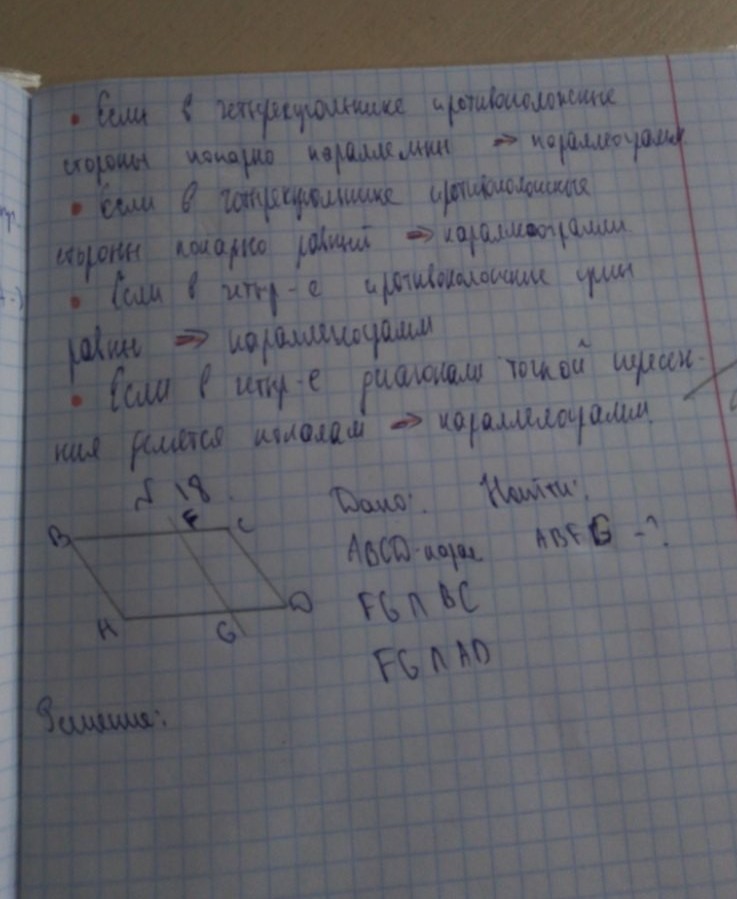 • Если в четырехугольнике противоположные
стороны попарно параллельны => параллелограмм
• Если в четырехугольнике противоположные
стороны попарно равны => параллелограмм
• Если в четыр-е противоположные углы
равны => параллелограмм
• Если в четыр-е диагонали точкой пересече-
ния делятся пополам => параллелограмм.
№ 18.
Дано: Найти:
B F C
ABCD-парал ABFG -?
FG ∩ BC
A G D
FG ∩ AD
Решение: